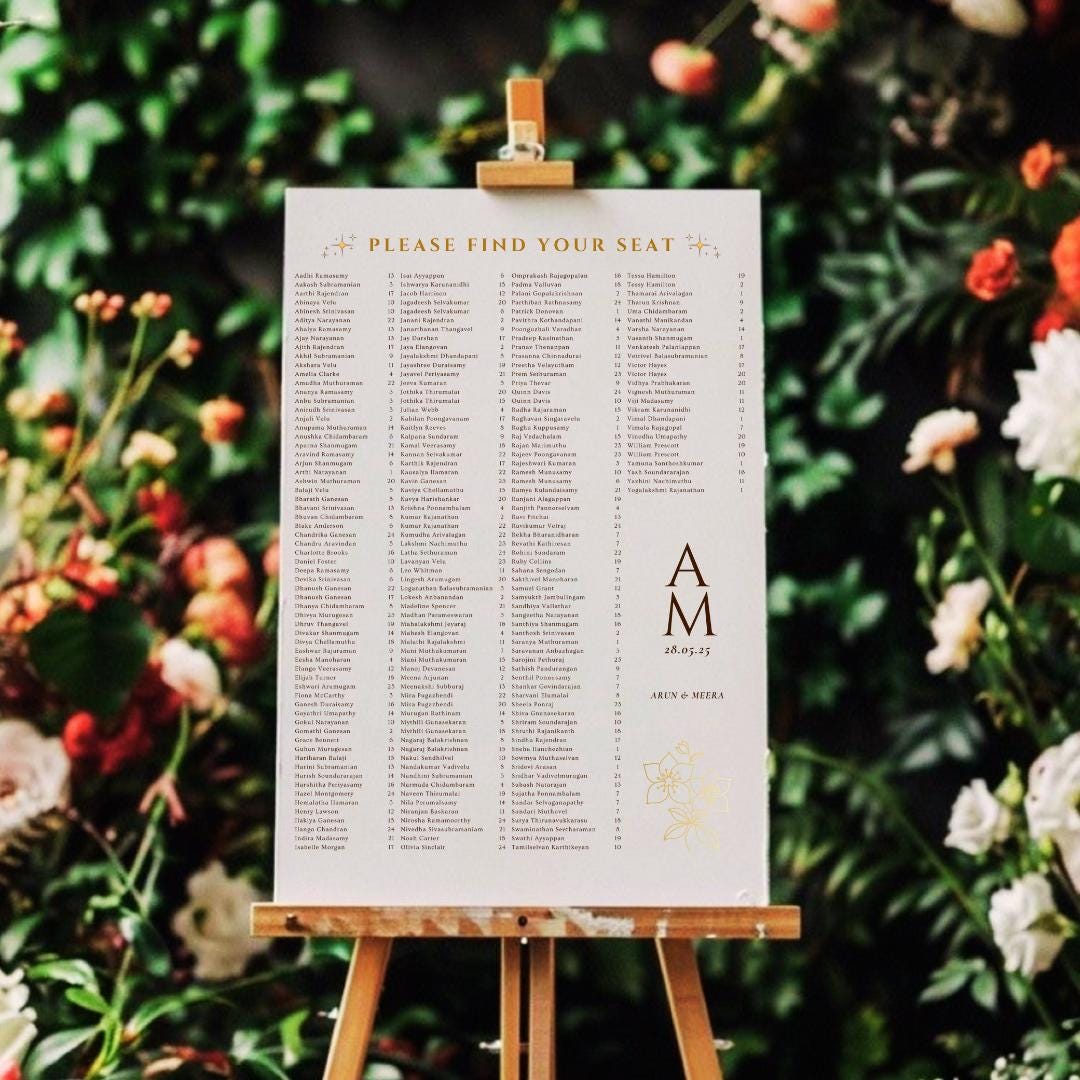 PLEASE FIND YOUR SEAT
Aadhi Ramasamy 13
Aakash Subramanian 3
Aarthi Rajendran 17
Abinaya Velu 10
Abinesh Srinivasan 10
Aditya Narayanan 22
Ahalya Ramasamy 13
Ajay Narayanan 13
Ajith Rajendran 17
Akhil Subramanian 9
Akshara Velu 11
Amelia Clarke 4
Amudha Muthuraman 22
Ananya Ramasamy 3
Anbu Subramanian 3
Anirudh Srinivasan 3
Anjali Velu 2
Anupama Muthuraman 14
Anushka Chidambaram 6
Aparna Shanmugam 21
Aravind Ramasamy 14
Arjun Shanmugam 6
Arthi Narayanan 1
Ashwin Muthuraman 20
Balaji Velu 5
Bharath Ganesan 5
Bhavani Srinivasan 13
Bhuvan Chidambaram 6
Blake Anderson 6
Chandrika Ganesan 24
Chandru Aravindan 5
Charlotte Brooks 16
Daniel Foster 10
Deepa Ramasamy 6
Devika Srinivasan 6
Dhanush Ganesan 22
Dhanush Ganesan 17
Dhanya Chidambaram 8
Dhivya Murugesan 23
Dhruv Thangavel 19
Divakar Shanmugam 14
Divya Chellamuthu 18
Eashwar Rajaraman 9
Eesha Manoharan 4
Elango Veerasamy 12
Elijah Turner 18
Eshwari Arumugam 23
Fiona McCarthy 3
Ganesh Duraisamy 16
Gayathri Umapathy 14
Gokul Narayanan 10
Gomathi Ganesan 2
Grace Bennett 6
Guhan Murugesan 13
Hariharan Balaji 15
Harini Subramanian 13
Harish Soundararajan 14
Harshitha Periyasamy 16
Hazel Montgomery 24
Hemalatha Ilamaran 3
Henry Lawson 12
Ilakiya Ganesan 15
Ilango Chandran 24
Indira Madasamy 21
Isabelle Morgan 17
Isai Ayyappan 6
Ishwarya Karunanidhi 15
Jacob Harrison 12
Jagadeesh Selvakumar 24
Jagadeesh Selvakumar 6
Janani Rajendran 2
Janarthanan Thangavel 9
Jay Darshan 17
Jaya Elangovan 2
Jayalakshmi Dhandapani 5
Jayashree Duraisamy 19
Jayavel Periyasamy 21
Jeeva Kumaran 5
Jothika Thirumalai 20
Jothika Thirumalai 15
Julian Webb 4
Kabilan Poongavanam 17
Kaitlyn Reeves 8
Kalpana Sundaram 9
Kamal Veerasamy 18
Kannan Selvakumar 22
Karthik Rajendran 17
Kausalya Ilamaran 22
Kavin Ganesan 6
Kaviya Chellamuthu 15
Kavya Harishankar 20
Krishna Ponnambalam 4
Kumar Rajanathan 2
Kumar Rajanathan 22
Kumudha Arivalagan 22
Lakshmi Nachimuthu 23
Latha Sethuraman 24
Lavanyan Velu 23
Leo Whitman 11
Lingesh Arumugam 20
Loganathan Balasubramanian 3
Lokesh Anbanandan 2
Madeline Spencer 21
Madhan Parameswaran 3
Mahalakshmi Jeyaraj 18
Mahesh Elangovan 4
Malathi Rajalakshmi 11
Mani Muthukumaran 7
Mani Muthukumaran 15
Manoj Devanesan 12
Meena Arjunan 2
Meenakshi Subburaj 13
Mira Pugazhendi 22
Mira Pugazhendi 20
Murugan Rathinam 14
Mythili Gunasekaran 5
Mythili Gunasekaran 18
Nagaraj Balakrishnan 8
Nagaraj Balakrishnan 15
Nakul Sendhilvel 10
Nandakumar Vadivelu 8
Nandhini Subramanian 5
Narmada Chidambaram 4
Naveen Thirumalai 19
Nila Perumalsamy 14
Niranjan Baskaran 11
Nirosha Ramamoorthy 24
Nivedha Sivasubramaniam 21
Noah Carter 18
Olivia Sinclair 24
Omprakash Rajagopalan 16
Padma Valluvan 18
Palani Gopalakrishnan 2
Parthiban Rathnasamy 24
Patrick Donovan 1
Pavithra Kothandapani 14
Poonguzhali Varadhan 4
Pradeep Kasinathan 3
Pranav Thenappan 11
Prasanna Chinnadurai 12
Preetha Velayutham 12
Prem Sethuraman 23
Priya Thevar 9
Quinn Davis 24
Quinn Davis 10
Radha Rajaraman 15
Raghavan Singaravelu 2
Raghu Kuppusamy 1
Raj Vedachalam 15
Rajan Marimuthu 23
Rajeev Poongavanam 10
Rajeshwari Kumaran 3
Ramesh Munusamy 10
Ramesh Munusamy 11
Ramya Kulandaisamy 21
Ranjani Alagappan 19
Ranjith Pannerselvam 4
Ravi Pitchai 13
Ravikumar Velraj 24
Rekha Bharanidharan 7
Revathi Kathiresan 7
Rohini Sundaram 22
Ruby Collins 19
Sahana Sengodan 7
Sakthivel Manoharan 21
Samuel Grant 12
Samyukth Jambulingam 3
Sandhiya Vallathar 21
Sangeetha Narayanan 18
Santhiya Shanmugam 16
Santhosh Srinivasan 2
Saranya Muthuraman 1
Saravanan Anbazhagan 5
Sarojini Pethuraj 23
Sathish Pandurangan 9
Senthil Ponnusamy 7
Shankar Govindarajan 7
Sharvani Elumalai 8
Sheela Ponraj 23
Shiva Gnanasekaran 16
Shriram Soundarajan 10
Shruthi Rajanikanth 18
Sindhu Rajendran 17
Sneha Ilanchezhian 1
Sowmya Muthuselvan 12
Sridevi Arasan 1
Sridhar Vadivelmurugan 24
Subash Natarajan 13
Sujatha Ponnambalam 7
Sundar Selvaganapathy 7
Sundari Muthuvel 7
Surya Thirunavukkarasu 18
Swaminathan Seetharaman 8
Swathi Ayyappan 19
Tamilselvan Karthikeyan 10
Tessa Hamilton 19
Tessy Hamilton 2
Thamarai Arivalagan 1
Tharun Krishnan 9
Uma Chidambaram 2
Vanathi Manikandan 4
Varsha Narayanan 14
Vasanth Shanmugam 1
Venkatesh Palaniappan 17
Vetrivel Balasubramanian 8
Victor Hayes 17
Victor Hayes 20
Vidhya Prabhakaran 20
Vignesh Muthuraman 11
Viji Madasamy 11
Vikram Karunanidhi 12
Vimal Dhandapani 1
Vimala Rajagopal 7
Vinodha Umapathy 20
William Prescott 19
William Prescott 10
Yamuna Santhoshkumar 1
Yash Soundararajan 16
Yazhini Nachimuthu 11
Yogalakshmi Rajanathan 1
A
M
28.05.25
ARUN & MEERA